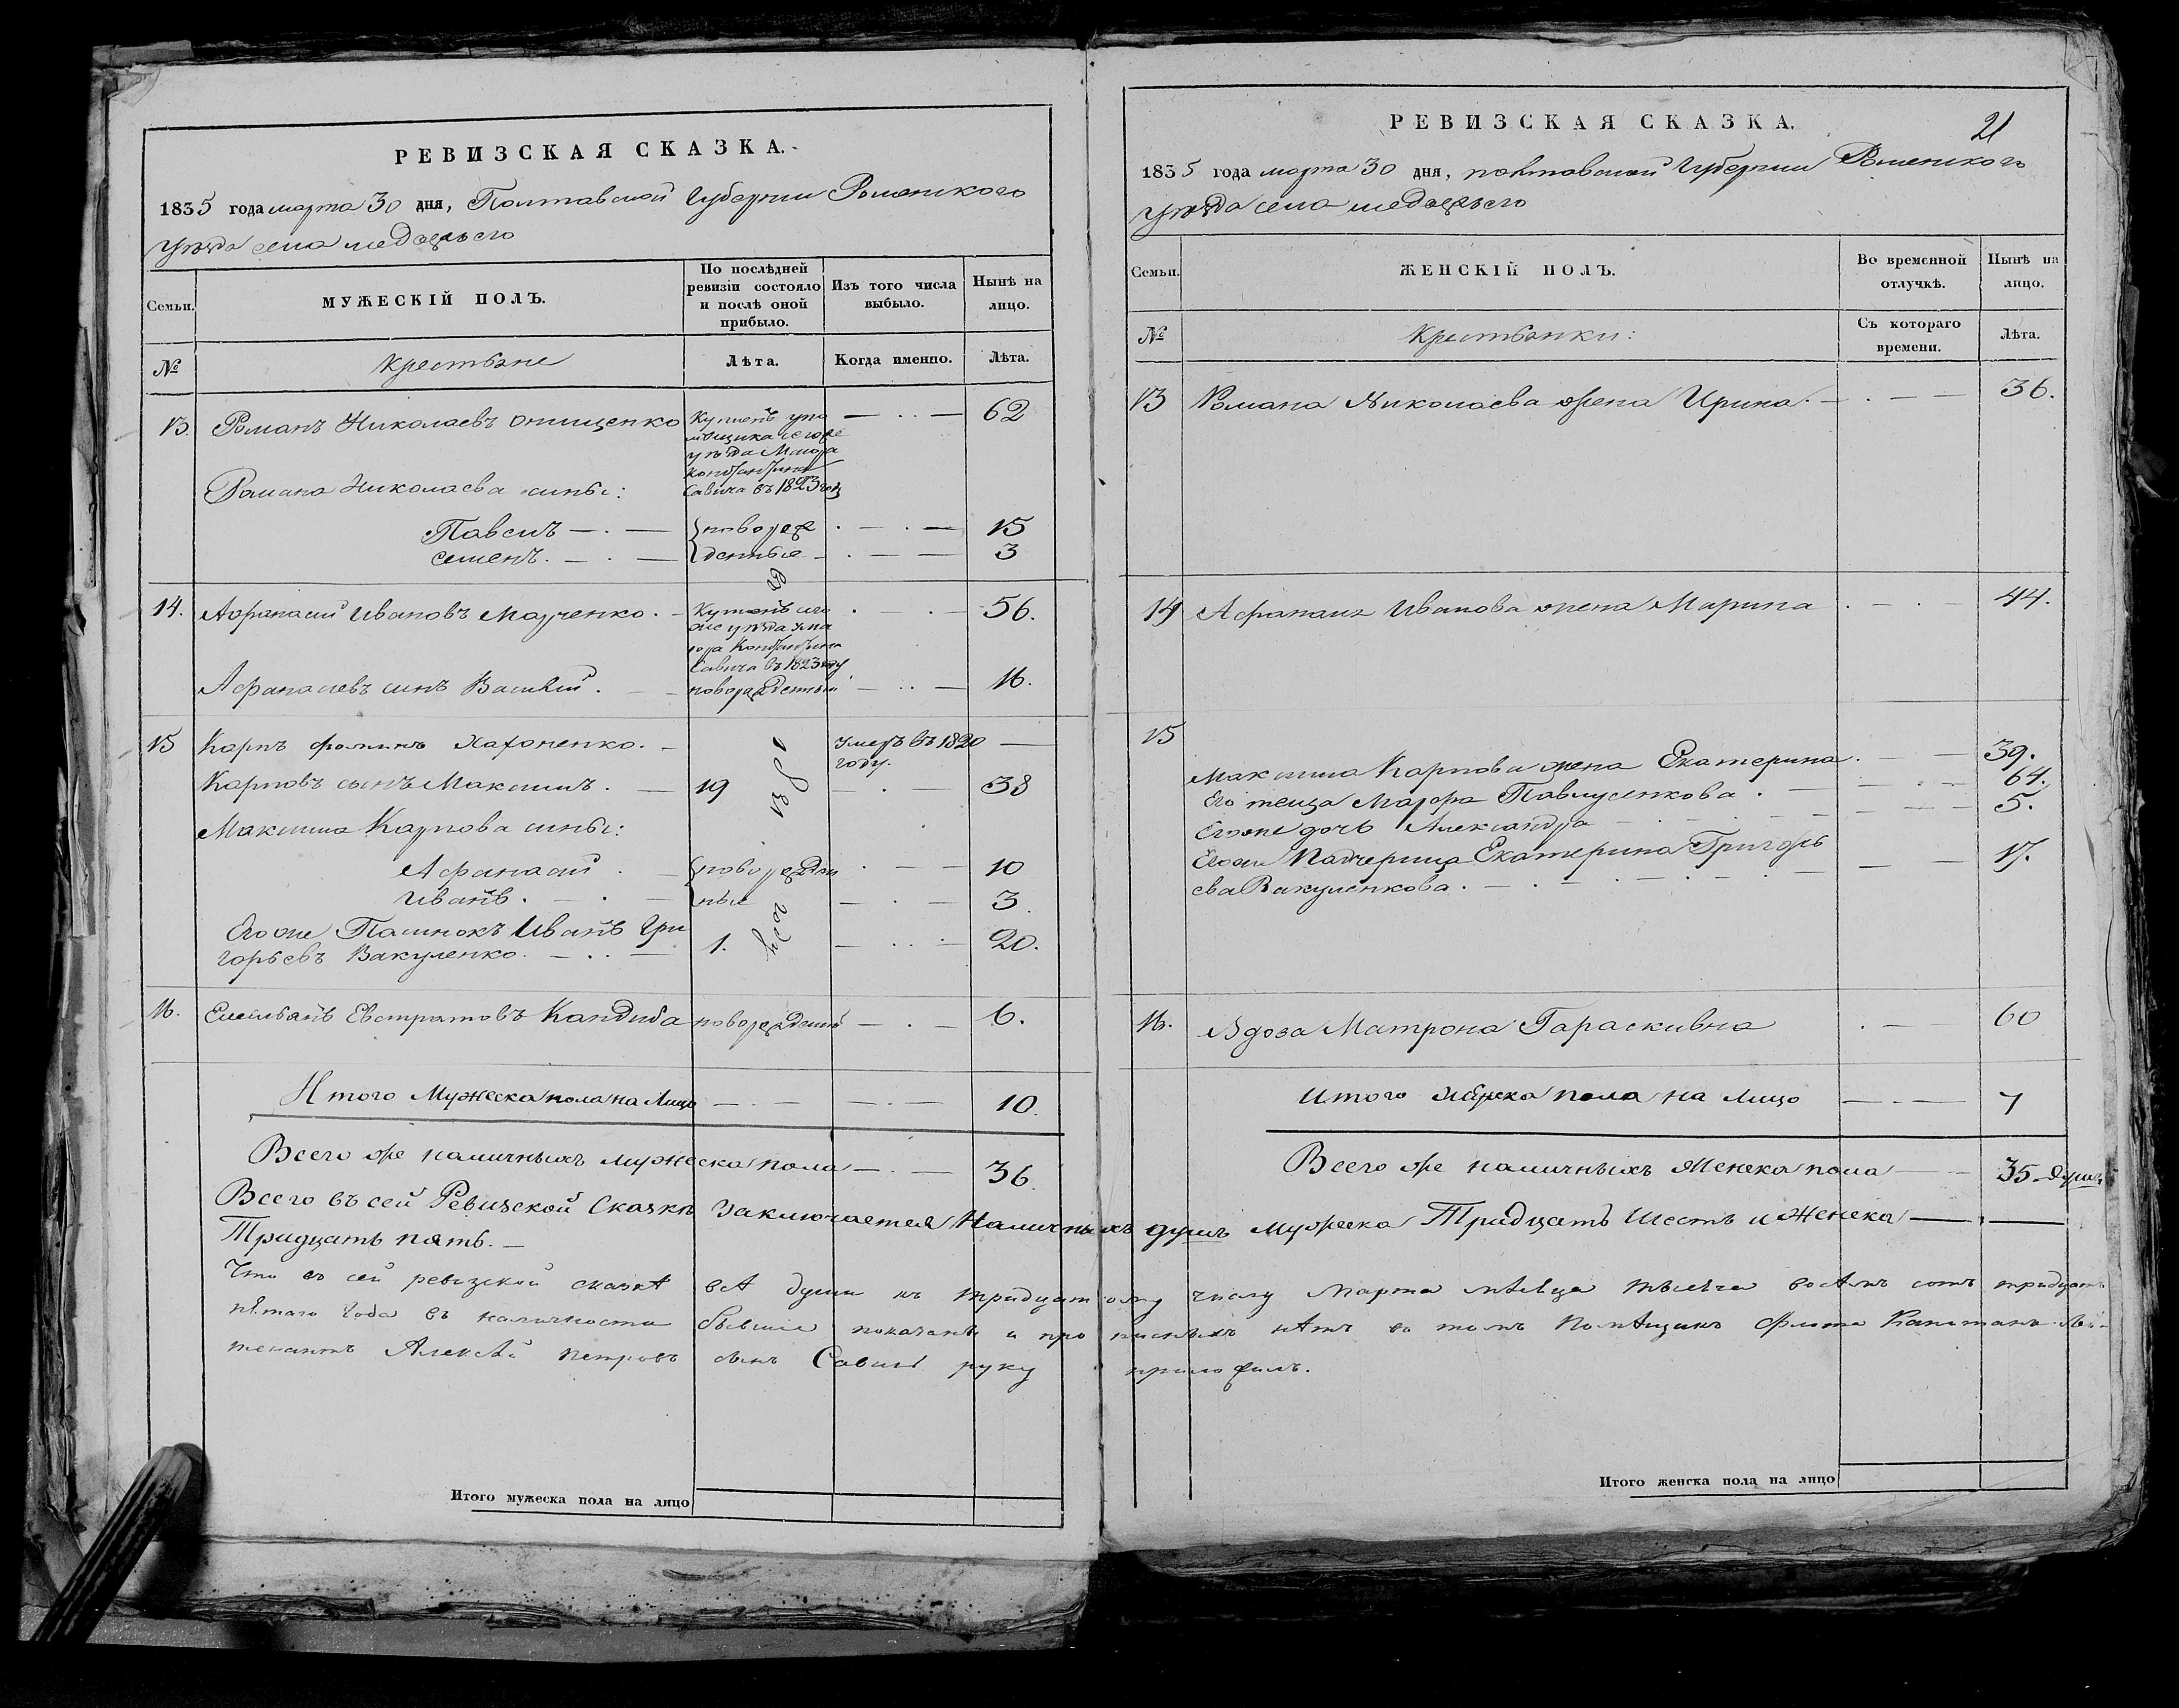 РЕВИЗСКАЯ СКАЗКА.
1835 года марта 30 дня, Полтавской Губернии Роменского
Уѣзда села
Семьи.
МУЖЕСКІЙ ПОЛЪ.
По послѣдней ревизіи состояло и послѣ оной прибыло.
Изъ того числа выбыло.
Нынѣ на лицо.
№
Крестьяне
Лѣта.
Когда именно.
Лѣта.
13. Романъ Николаевъ Онищенко Купленъ у по — . . — 62
мѣщика сего же
уѣзда Маіора
Константина
Романа Николаева сины: Савича въ 1823 году
Павелъ — . — новорож . — . — 15
Семенъ. — . — денные — . — — 3
14. Афанасий Ивановъ Марченко. — Купленъ сего . — . — 56.
же уѣзда у ма
іора Константина
Савича въ 1823 году
Афанасиевъ синъ Василий. — новорожденный — . . — 16.
15 Карпъ Фоминъ Хахоненко. — умеръ въ 1820 —
году.
Карповъ сынъ Максимъ. — 19 — . — 38
Максима Карпова сины:
Афанасий . — новорожден . — — 10
Иванъ. — . — ные — . — 3.
Его же Пасинокъ Иванъ Гри
горьевъ Вакуленко. — . . — 1. — . . — 20.
въ 1831 году
16. Емельянъ Евстратовъ Кандиба новорожденный — . — 6.
Итого Мужеска пола на Лицо — . — — . — 10.
Всего же наличныхъ мужеска пола — . — 36.
Итого мужеска пола на лицо
РЕВИЗСКАЯ СКАЗКА.
21
1835 года марта 30 дня, полтавской Губернии Роменского
Уѣзда села
Семьи.
ЖЕНСКІЙ ПОЛЪ.
Во временной отлучкѣ.
Нынѣ на лицо.
№
Крестьянки:
Съ котораго времени.
Лѣта.
13 Романа Николаева жена Ирина. — . — — 36.
14 Афанасия Иванова жена Марина . — . — 44.
15
Максима Карпова жена Екатерина . — — 39.
Его теща Марфа Павлусенкова . — — . — 64.
Его же дочь Александра — . — . — — — 5.
Его же Падчерица Екатерина Григорь — — 17.
ева Вакуленкова. — . — . — . — . —
16. Вдова Матрона Гараскивна . — 60
Итого женска пола на лицо — . — 7
Всего же наличныхъ Женска пола — — 35 душъ
Всего въ сей Ревизской Сказкѣ Заключается Наличныхъ душъ Мужеска Тридцать Шесть и Женска — . —
Тридцать пять. —
Что въ сей ревизской сказкѣ всѣ души къ тридцатому числу Марта мѣсяца тысяча восѣмъ сотъ тридцать
пятаго Года въ наличности бывшие показаны и прописныхъ нѣтъ въ томъ Помѣщикъ Флота Капитанъ Лей-
тенантъ Алексѣй Петровъ сынъ Савичъ руку приложилъ.
Итого женска пола на лицо